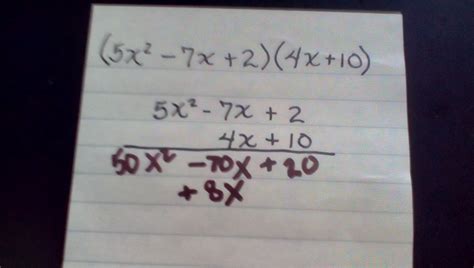 (5x² - 7x + 2)(4x + 10)
5x² - 7x + 2
4x + 10
50x² - 70x + 20
+ 8x